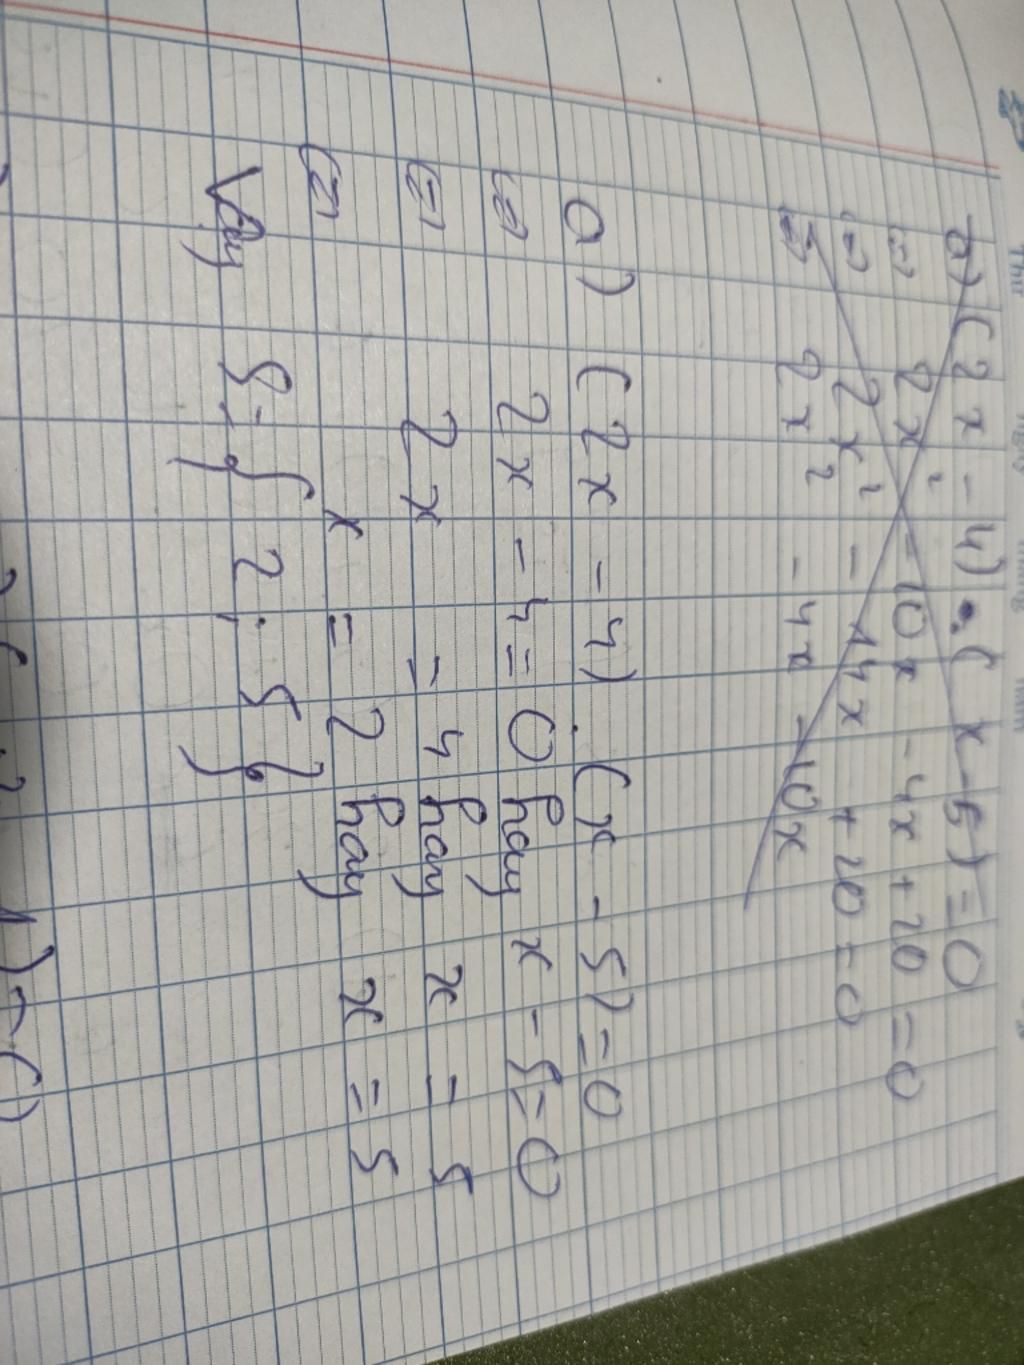 Thứ ngày tháng năm
a) (2x - 4) . (x - 5) = 0
(=) 2x² - 10x - 4x + 20 = 0
(=) 2x² - 14x + 20 = 0
(=) 2x² - 4x - 10x
a) (2x - 4) . (x - 5) = 0
(=) 2x - 4 = 0 hay x - 5 = 0
(=) 2x = 4 hay x = 5
(=) x = 2 hay x = 5
Vậy S = { 2 ; 5 }